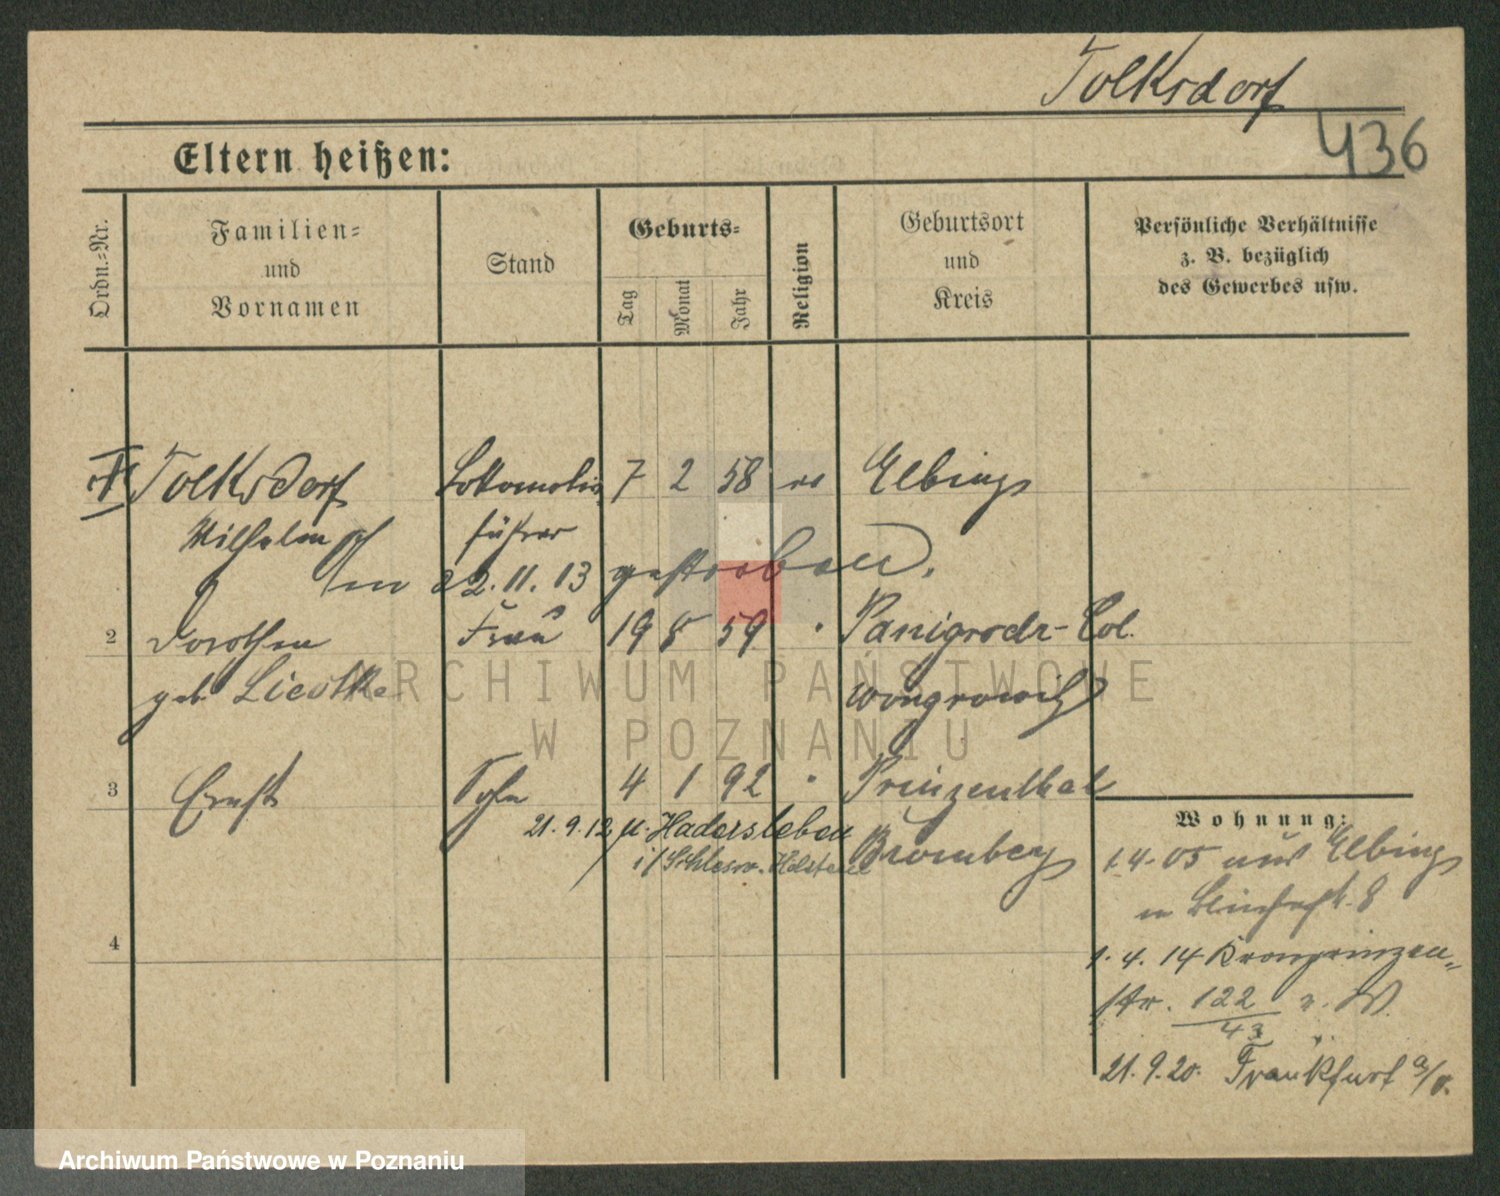 Tolksdorf
436
Eltern heißen:
Ordn.-Nr.
Familien-
und
Vornamen
Stand
Geburts-
Tag
Monat
Jahr
Religion
Geburtsort
und
Kreis
Persönliche Verhältnisse
z. B. bezüglich
des Gewerbes usw.
Tolksdorf Lokomotiv 7 2 58 Elbing
Wilhelm führer
22. 11. 13 gestorben.
2 Dorothea Frau 19 8 59 Panigrodz-Col.
geb Wongrowitz
3 Ernst Sohn 4 1 92 Prinzenthal
21. 9. 12 n. Hadersleben Bromberg
i/ Schlesw. Holstein
4
Wohnung:
1.4.05 aus Elbing
8
1. 4. 14 Kronprinzen-
str. 122
43
21. 9. 20. Frankfurt a/O.
ARCHIWUM PAŃSTWOWE
W POZNANIU
Archiwum Państwowe w Poznaniu